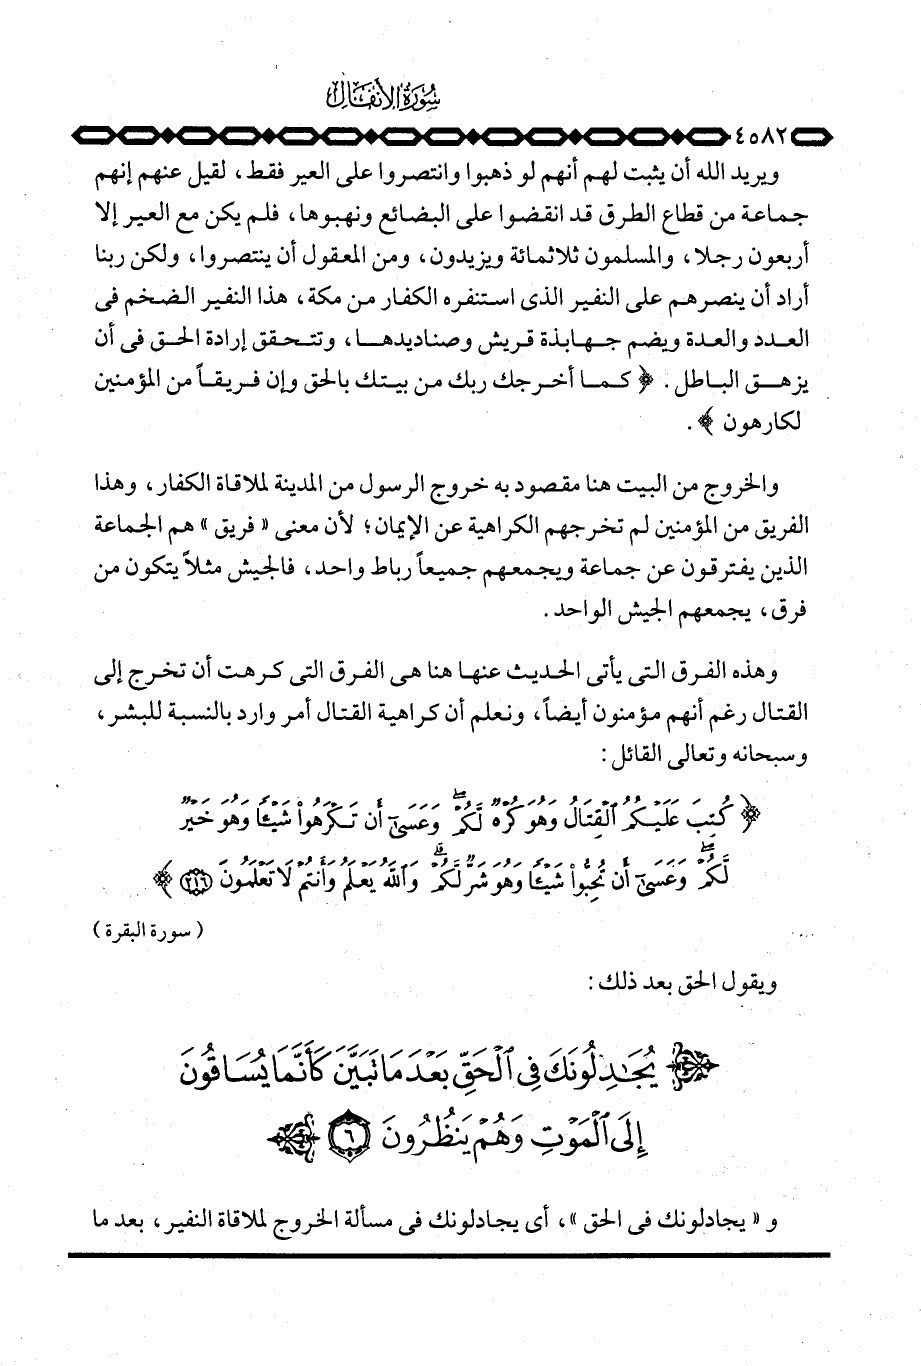 سُورَةُ الأَنفَالِ
٤٥٨٢
ويريد الله أن يثبت لهم أنهم لو ذهبوا وانتصروا على العير فقط، لقيل عنهم إنهم
جماعة من قطاع الطرق قد انقضوا على البضائع ونهبوها، فلم يكن مع العير إلا
أربعون رجلا، والمسلمون ثلاثمائة ويزيدون، ومن المعقول أن ينتصروا، ولكن ربنا
أراد أن ينصرهم على النفير الذى استنفره الكفار من مكة، هذا النفير الضخم فى
العدد والعدة ويضم جهابذة قريش وصناديدها، وتتحقق إرادة الحق فى أن
يزهق الباطل. ﴿ كما أخرجك ربك من بيتك بالحق وإن فريقاً من المؤمنين
لكارهون ﴾.
والخروج من البيت هنا مقصود به خروج الرسول من المدينة لملاقاة الكفار، وهذا
الفريق من المؤمنين لم تخرجهم الكراهية عن الإيمان؛ لأن معنى « فريق » هم الجماعة
الذين يفترقون عن جماعة ويجمعهم جميعاً رباط واحد، فالجيش مثلاً يتكون من
فرق، يجمعهم الجيش الواحد.
وهذه الفرق التى يأتى الحديث عنها هنا هى الفرق التى كرهت أن تخرج إلى
القتال رغم أنهم مؤمنون أيضاً، ونعلم أن كراهية القتال أمر وارد بالنسبة للبشر،
وسبحانه وتعالى القائل:
﴿ كُتِبَ عَلَيْكُمُ ٱلْقِتَالُ وَهُوَ كُرْهٌ لَّكُمْ ۖ وَعَسَىٰٓ أَن تَكْرَهُوا۟ شَيْـًٔا وَهُوَ خَيْرٌ
لَّكُمْ ۖ وَعَسَىٰٓ أَن تُحِبُّوا۟ شَيْـًٔا وَهُوَ شَرٌّ لَّكُمْ ۗ وَٱللَّهُ يَعْلَمُ وَأَنتُمْ لَا تَعْلَمُونَ ٢١٦ ﴾
( سورة البقرة )
ويقول الحق بعد ذلك:
﴿ يُجَـٰدِلُونَكَ فِى ٱلْحَقِّ بَعْدَ مَا تَبَيَّنَ كَأَنَّمَا يُسَاقُونَ
إِلَى ٱلْمَوْتِ وَهُمْ يَنظُرُونَ ٦ ﴾
و « يجادلونك فى الحق »، أى يجادلونك فى مسألة الخروج لملاقاة النفير، بعد ما